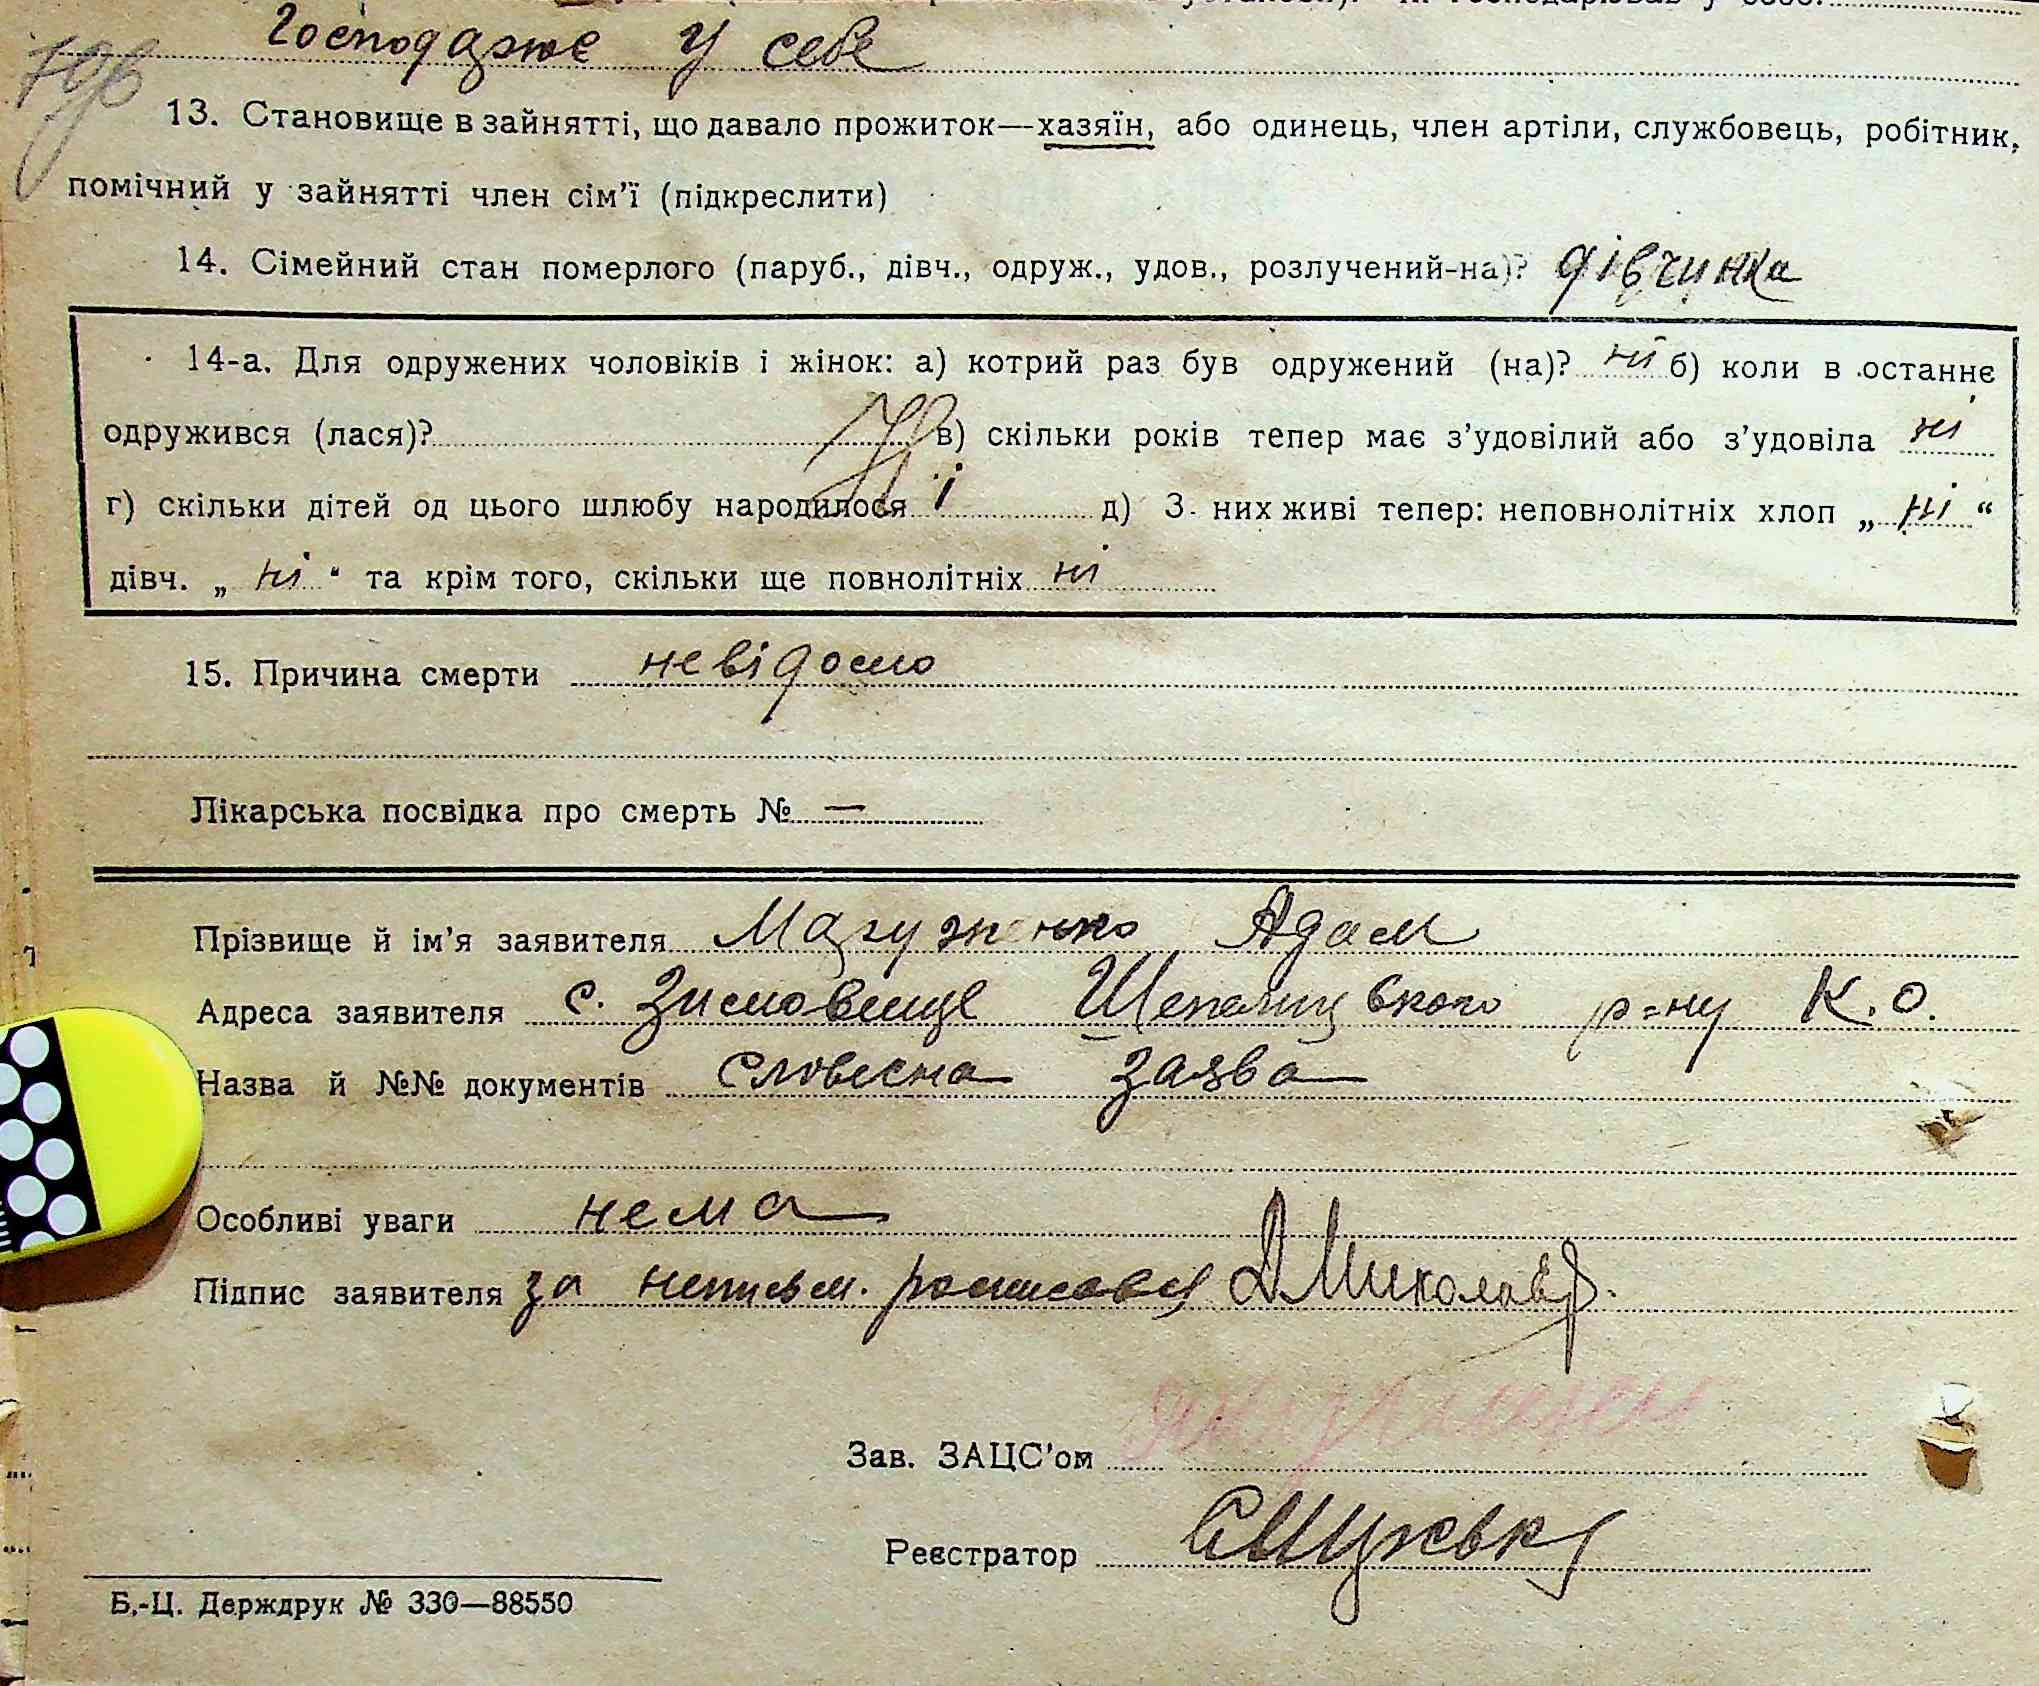 господарює у себе
13. Становище в зайнятті, що давало прожиток—хазяїн, або одинець, член артіли, службовець, робітник,
помічний у зайнятті член сім'ї (підкреслити)
14. Сімейний стан померлого (паруб., дівч., одруж., удов., розлучений-на)? дівчинка
14-а. Для одружених чоловіків і жінок: а) котрий раз був одружений (на)? ні б) коли в останнє
одружився (лася)? в) скільки років тепер має з'удовілий або з'удовіла ні
г) скільки дітей од цього шлюбу народилося д) З них живі тепер: неповнолітніх хлоп „ ні “
дівч. „ ні “ та крім того, скільки ще повнолітніх ні
15. Причина смерти невідомо
Лікарська посвідка про смерть № —
Прізвище й ім'я заявителя Адам
Адреса заявителя с. Зимовище Шепелицького р-ну К.О.
Назва й №№ документів словесна заява
Особливі уваги нема
Підпис заявителя за неписьм. росписався
Зав. ЗАЦС'ом
Реєстратор
Б.-Ц. Держдрук № 330—88550